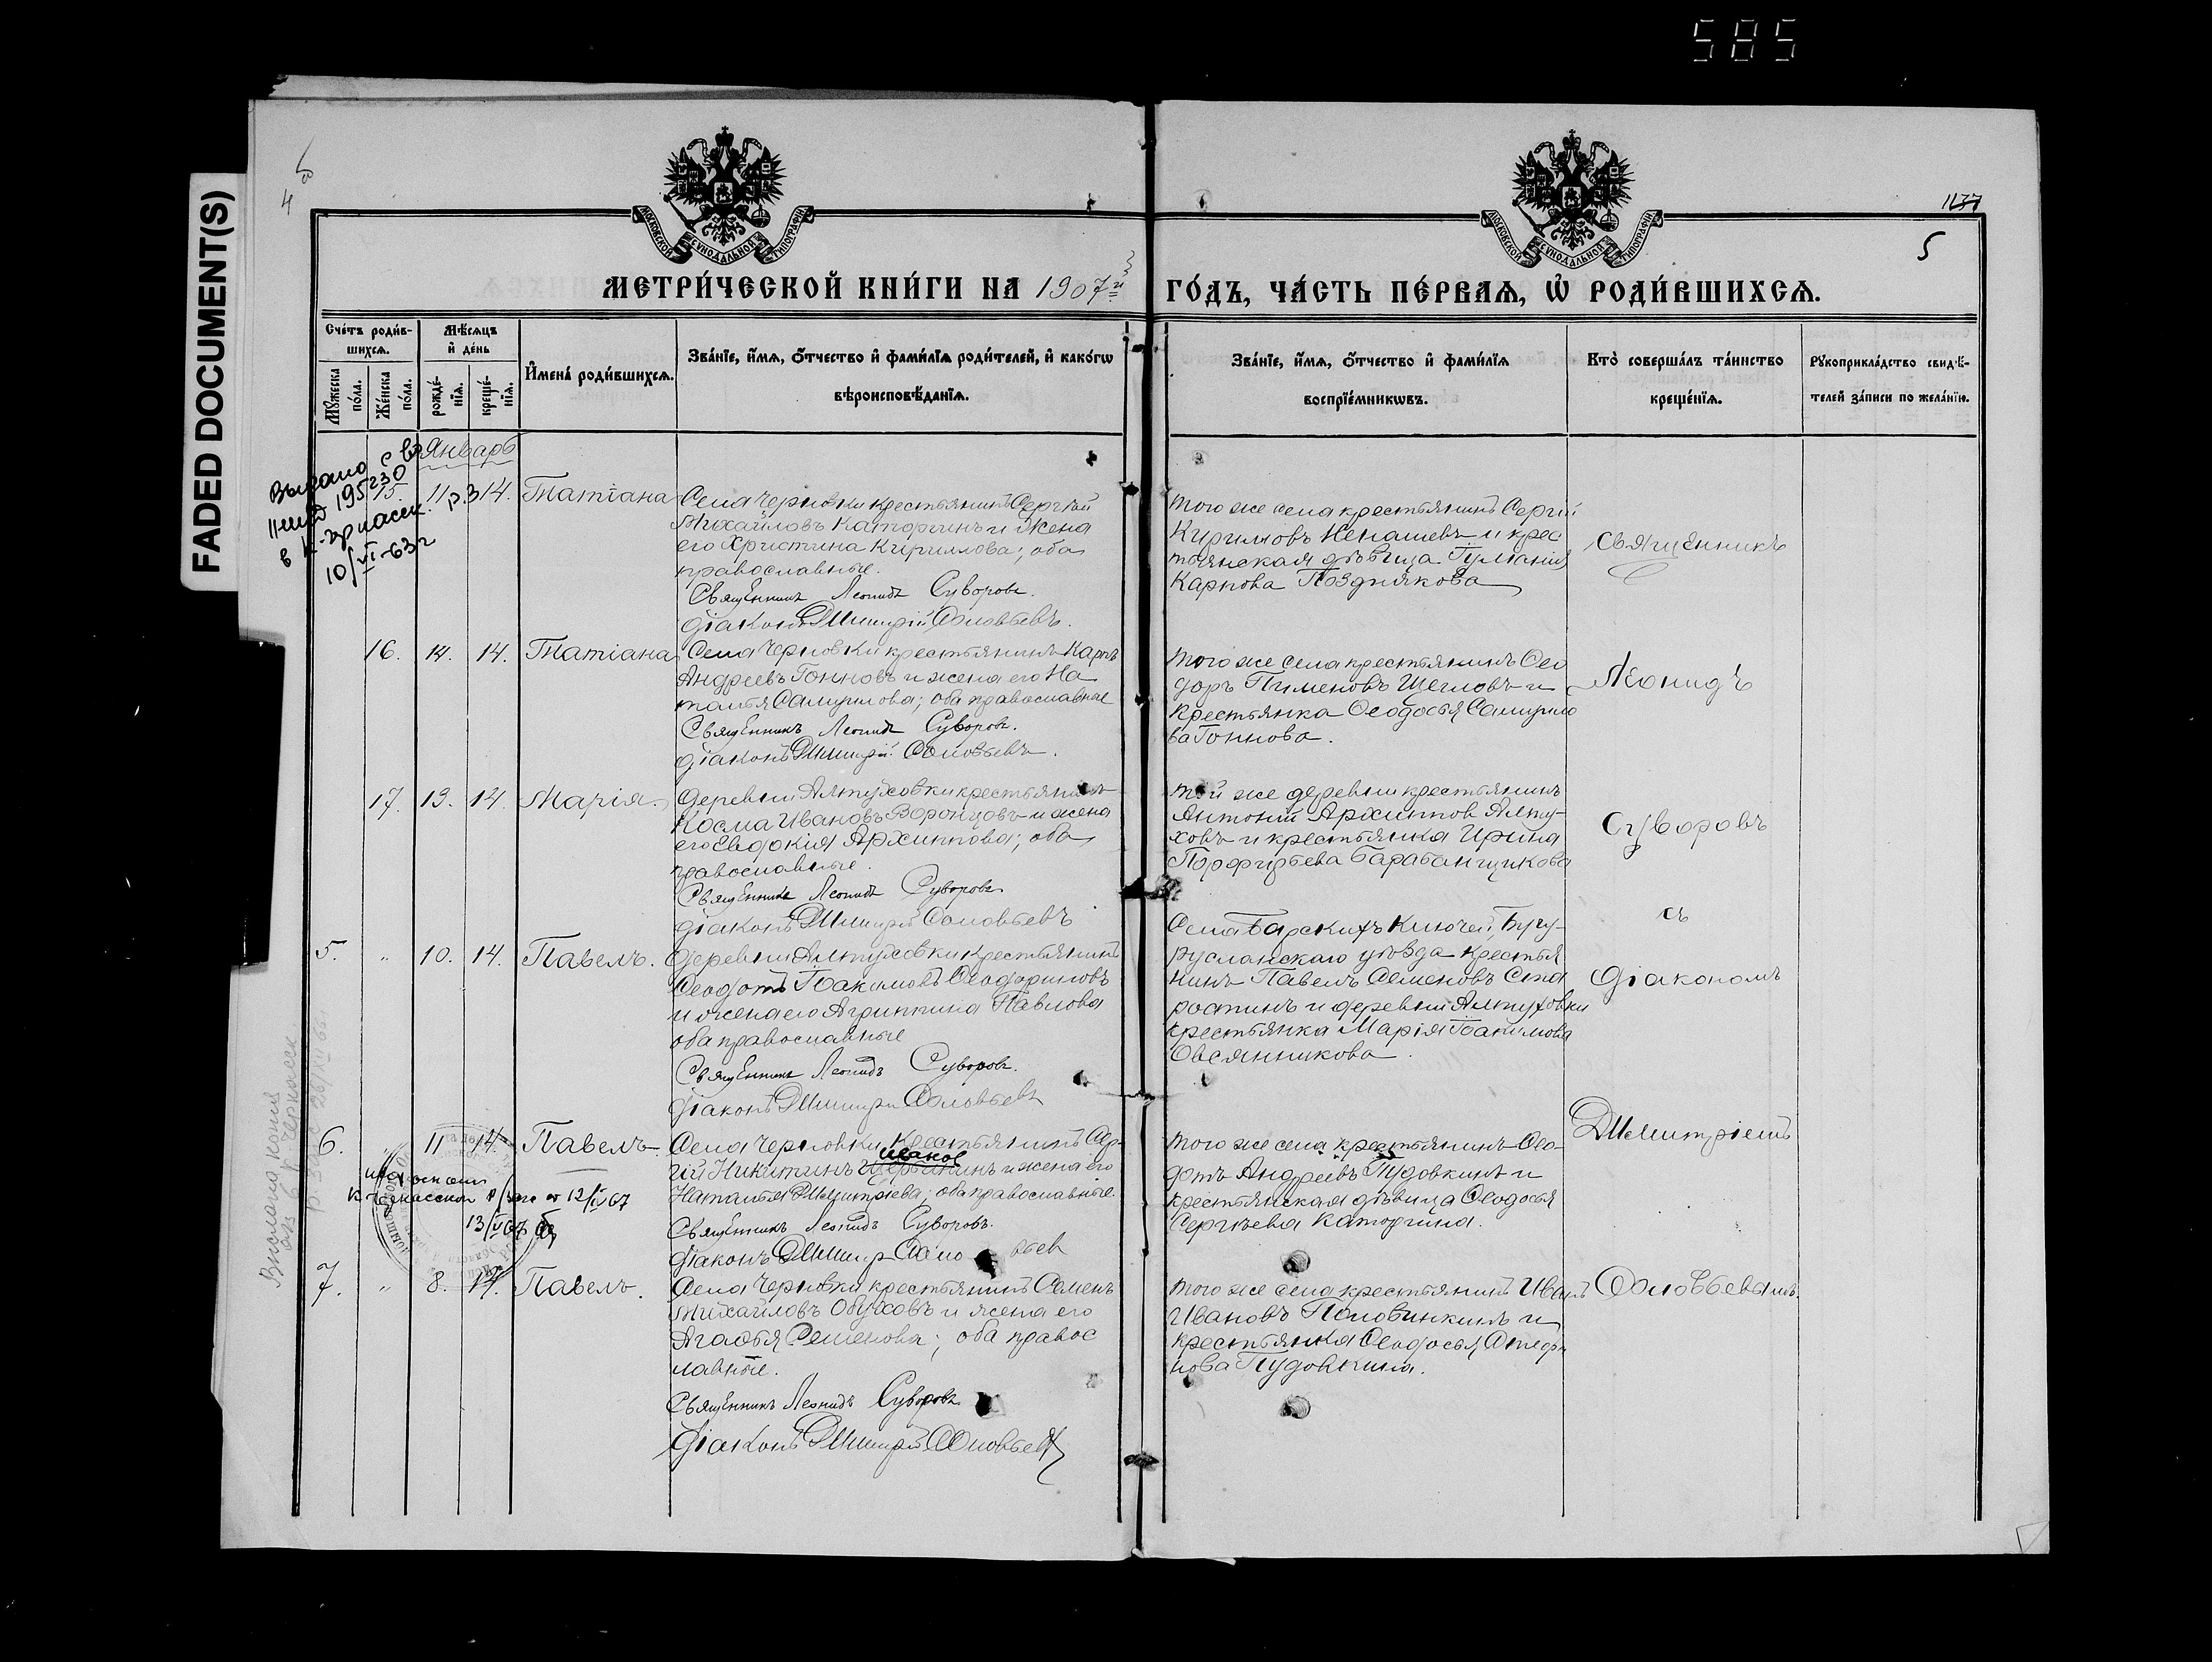 585
FADED DOCUMENT(S)
4
1177
5
МОСКОВСКОЙ СѴНОДАЛЬНОЙ ТИПОГРАФІИ
МОСКОВСКОЙ СѴНОДАЛЬНОЙ ТИПОГРАФІИ
МЕТРИ́ЧЕСКОЙ КНИ́ГИ НА 1907й
ГО́ДЪ, ЧА́СТЬ ПЕ́РВАѦ, Ѡ҆ РОДИ́ВШИХСѦ.
Сче́тъ роди́в-
шихсѧ.
Мꙋ́жеска по́ла.
Же́нска по́ла.
Мѣ́сѧцъ
и҆ де́нь
рожде́-
нїѧ.
креще́-
нїѧ.
И҆мена̀ роди́вшихсѧ.
Зва́нїе, и҆́мѧ, ѻ҆́тчество и҆ фами́лїѧ роди́телей, и҆ како́гѡ
вѣроисповѣ́данїѧ.
Зва́нїе, и҆́мѧ, ѻ҆́тчество и҆ фами́лїѧ
воспрїе́мникѡвъ.
Кто̀ соверша́лъ та́инство
креще́нїѧ.
Рꙋкоприкла́дство свидѣ́-
телей за́писи по жела́нїю.
Январь
Выдано с в
195230
10/VI-63г
15. 11 14. Татіана
Села Черновки крестьянинъ Сергѣй
Михайловъ Каторгинъ и жена
его Христина Кириллова; оба
православные.
Священникъ Леонидъ Суворовъ.
Діаконъ Димитрій Соловьевъ.
Того же села крестьянинъ Сергій
Кирилловъ Ненашевъ и крес
тьянская дѣвица Іуліанія
Карпова Позднякова
Священникъ
16. 14. 14. Татіана
Села Черновки крестьянинъ Карпъ
Андреевъ Гонновъ и жена его На
талья Самуилова; оба православные
Священникъ Леонидъ Суворовъ.
Діаконъ Димитрій Соловьевъ.
Того же села крестьянинъ Ѳео
доръ Пименовъ Щегловъ и
крестьянка Ѳеодосья Самуило
ва Гоннова.
Леонидъ
17. 13. 14. Марія.
Деревни Алтуховки крестьянинъ
Косма Ивановъ Воронцовъ и жена
его Евдокія Архиппова; оба
православные.
Священникъ Леонидъ Суворовъ
Діаконъ Димитрій Соловьевъ
Той же деревни крестьянинъ
Антоній Архиппов Алту-
ховъ и крестьянка Ирина
Порфирьева Барабанщикова
Суворовъ
съ
5. " 10. 14. Павелъ.
Деревни Алтуховки крестьянинъ
Ѳеодотъ Іоакимовъ
и жена его Агриппина Павлова
оба православные
Священникъ Леонидъ Суворовъ.
Діаконъ Димитрій Соловьевъ
Села Барскихъ Ключей, Бугу-
русланскаго уѣзда крестья
нинъ Павелъ Семеновъ Ста
ростинъ и деревни Алтуховки
крестьянка Марія Іоакимова
Овсянникова.
Діакономъ
6. " 11 14. Павелъ
Села Черновки крестьянинъ Сер-
Иванов
гій Никитинъ Щербининъ и жена его
Наталья Димитріева; оба православные.
Священникъ Леонидъ Суворовъ.
Діаконъ Димитр Соло вьев
Того же села крестьянинъ Ѳео-
дотъ Андреевъ Пудовкинъ и
крестьянская дѣвица Ѳеодосья
Сергѣева Каторгина.
Димитріемъ
13/VI 67
Выслана копия
7. " 8. 14. Павелъ.
Села Черновки крестьянинъ Семенъ
Михайловъ Обуховъ и жена его
Агаѳья Семенова; оба правос
лавные.
Священникъ Леонидъ Суворовъ.
Діаконъ Димитрій Соловьевъ
Того же села крестьянинъ Иванъ
Ивановъ Половинкинъ и
крестьянка Ѳеодосья Стефа
нова Пудовкина.
Соловьевымъ.